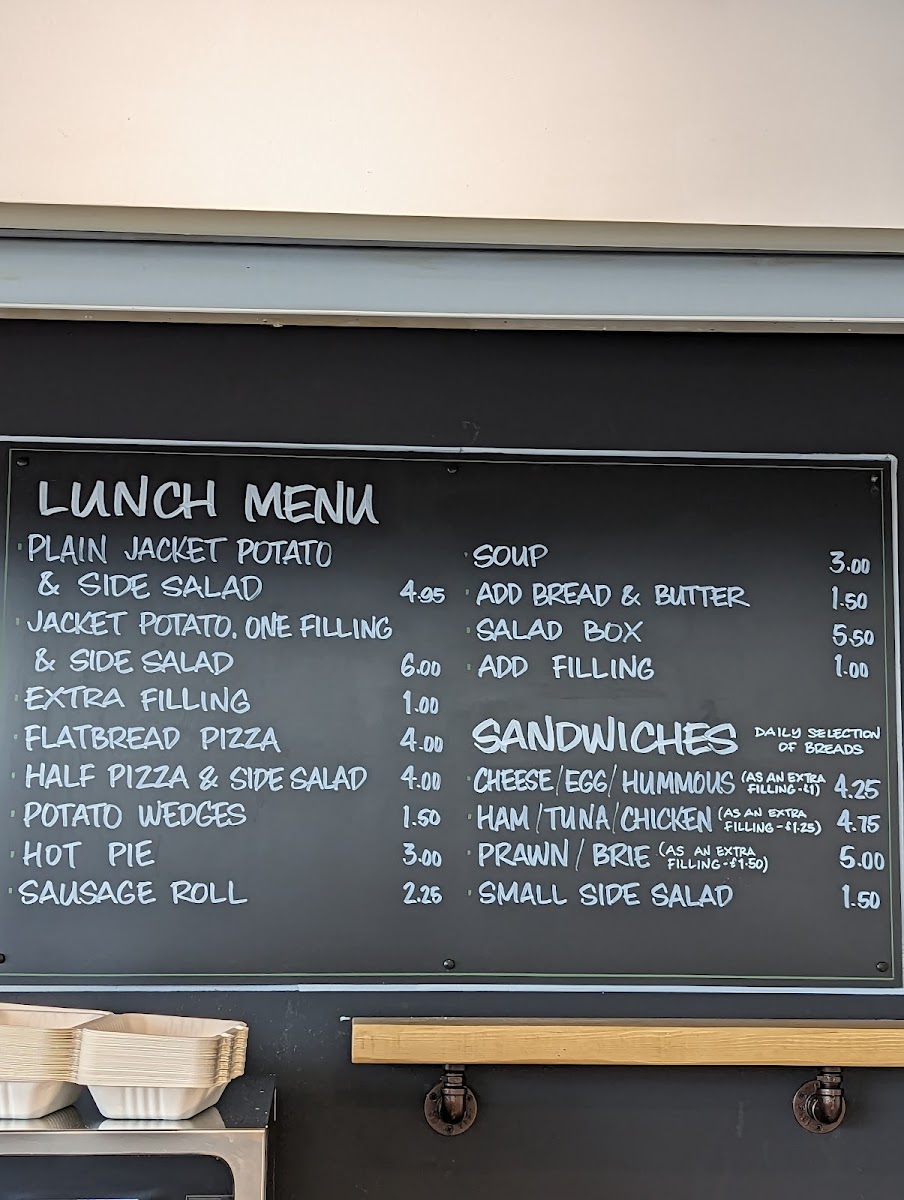 LUNCH MENU
PLAIN JACKET POTATO
& SIDE SALAD 4.95
JACKET POTATO. ONE FILLING
& SIDE SALAD 6.00
EXTRA FILLING 1.00
FLATBREAD PIZZA 4.00
HALF PIZZA & SIDE SALAD 4.00
POTATO WEDGES 1.50
HOT PIE 3.00
SAUSAGE ROLL 2.25
SOUP 3.00
ADD BREAD & BUTTER 1.50
SALAD BOX 5.50
ADD FILLING 1.00
SANDWICHES DAILY SELECTION
OF BREADS
CHEESE/EGG/HUMMOUS (AS AN EXTRA
FILLING-£1) 4.25
HAM/TUNA/CHICKEN (AS AN EXTRA
FILLING-£1.25) 4.75
PRAWN/BRIE (AS AN EXTRA
FILLING-£1.50) 5.00
SMALL SIDE SALAD 1.50